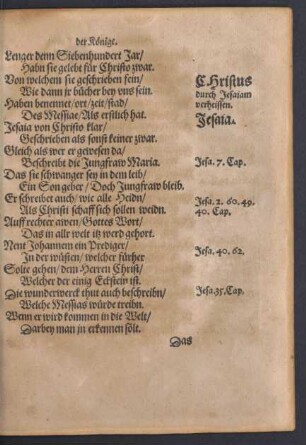 der Könige.
Lenger denn Siebenhundert Jar/
Habn sie gelebt für Christo zwar.
Von welchem sie geschrieben sein/
Wie dann jr bücher bey vns sein.
Haben benennet/ort/zeit/stad/
Des Messiae/Als erstlich hat.
Jesaia von Christo klar/
Geschrieben als sonst keiner zwar.
Gleich als wer er gewesen da/
Beschreibt die Jungfraw Maria.
Das sie schwanger sey in dem leib/
Ein Son geber/Doch Jungfraw bleib.
Er schreibet auch/wie alle Heidn/
Als Christi schaff sich sollen weidn.
Auff rechter awen/Gottes Wort/
Das in allr welt itz werd gehort.
Nent Johannem ein Prediger/
In der wüsten/welcher fürher
Solte gehen/dem Herren Christ/
Welcher der einig Eckstein ist.
Die wunderwerck thut auch beschreibn/
Welche Messias würde treibn.
Wenn er wird kommen in die Welt/
Darbey man jn erkennen sölt.
Das
CHristus
durch Jesaiam
verheissen.
Jesaia.
Jesa. 7. Cap.
Jesa. 2. 60. 49.
40. Cap.
Jesa. 40. 62.
Jesa. 35. Cap.